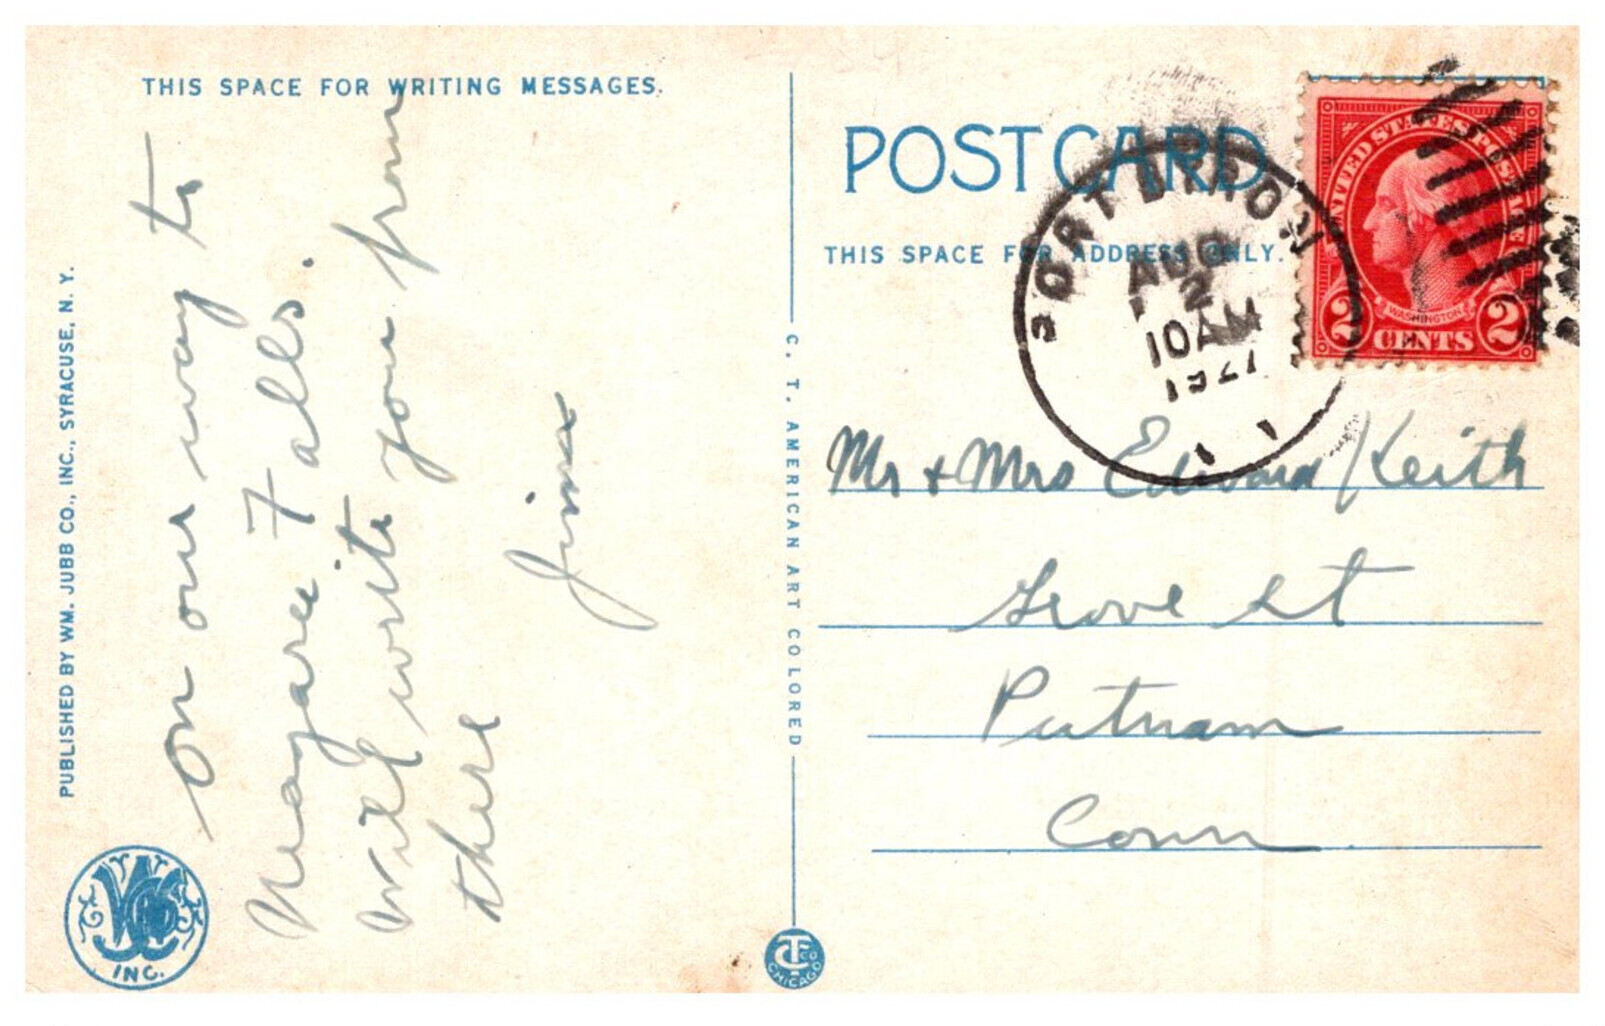 THIS SPACE FOR WRITING MESSAGES.
on our way to
Niagara Falls.
will write you from
there
PUBLISHED BY WM. JUBB CO., INC., SYRACUSE, N. Y.
INC.
C. T. AMERICAN ART COLORED
CTCO
CHICAGO
POST CARD
THIS SPACE FOR ADDRESS ONLY.
AUG
2
10 AM
UNITED STATES POSTAGE
WASHINGTON
2 CENTS 2
Mr + Mrs Edward Keith
Grove St
Putnam
Conn